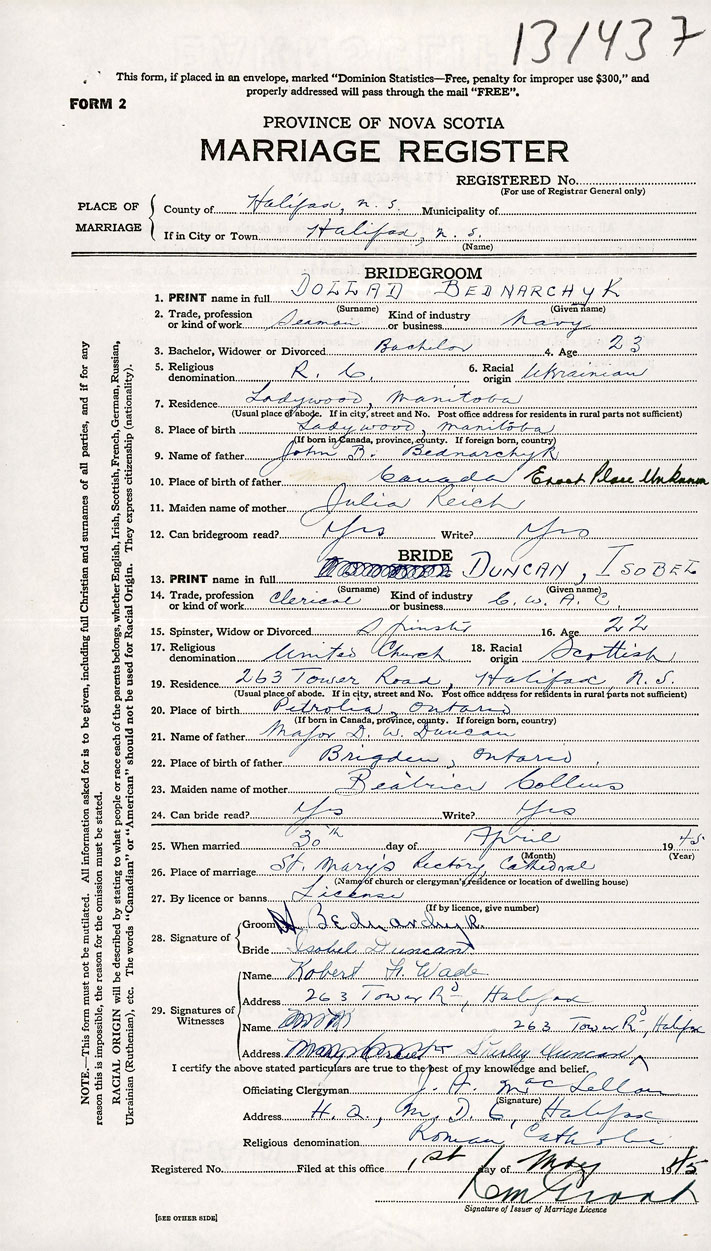 131437
This form, if placed in an envelope, marked "Dominion Statistics—Free, penalty for improper use $300," and
properly addressed will pass through the mail "FREE".
FORM 2
PROVINCE OF NOVA SCOTIA
MARRIAGE REGISTER
REGISTERED No.
(For use of Registrar General only)
PLACE OF MARRIAGE
County of Halifax, N. S. Municipality of
If in City or Town Halifax, N. S.
(Name)
BRIDEGROOM
1. PRINT name in full DOLLAD BEDNARCHYK
(Surname) (Given name)
2. Trade, profession or kind of work Seaman Kind of industry or business Navy
3. Bachelor, Widower or Divorced Bachelor 4. Age 23
5. Religious denomination R. C. 6. Racial origin Ukrainian
7. Residence Ladywood, Manitoba
(Usual place of abode. If in city, street and No. Post office address for residents in rural parts not sufficient)
8. Place of birth Ladywood, Manitoba
(If born in Canada, province, county. If foreign born, country)
9. Name of father John B. Bednarchyk
10. Place of birth of father Canada Exact Place Unknown
11. Maiden name of mother Julia Reich
12. Can bridegroom read? Yes Write? Yes
BRIDE
13. PRINT name in full DUNCAN, ISOBEL
(Surname) (Given name)
14. Trade, profession or kind of work Clerical Kind of industry or business C. W. A. C.
15. Spinster, Widow or Divorced Spinster 16. Age 22
17. Religious denomination United Church 18. Racial origin Scottish
19. Residence 263 Tower Road, Halifax, N. S.
(Usual place of abode. If in city, street and No. Post office address for residents in rural parts not sufficient)
20. Place of birth Petrolia, Ontario
(If born in Canada, province, county. If foreign born, country)
21. Name of father Major D. W. Duncan
22. Place of birth of father Brigden, Ontario.
23. Maiden name of mother Beatrice Collins
24. Can bride read? Yes Write? Yes
25. When married 30th day of April 1945
(Month) (Year)
26. Place of marriage St. Mary's Rectory, Cathedral
(Name of church or clergyman's residence or location of dwelling house)
27. By licence or banns License
(If by licence, give number)
28. Signature of
Groom Bednarchyk
Bride Isobel Duncan
29. Signatures of Witnesses
Name Robert H. Wade
Address 263 Tower Rd, Halifax
Name 263 Tower Rd, Halifax
Address Duncan
I certify the above stated particulars are true to the best of my knowledge and belief.
Officiating Clergyman J. A. MacLellan
(Signature)
Address H. Q., M. D. 6, Halifax
Religious denomination Roman Catholic
Registered No. Filed at this office 1st day of May 1945
Signature of Issuer of Marriage Licence
[SEE OTHER SIDE]
NOTE.—This form must not be mutilated. All information asked for is to be given, including full Christian and surnames of all parties, and if for any
reason this is impossible, the reason for the omission must be stated.
RACIAL ORIGIN will be described by stating to what people or race each of the parents belongs, whether English, Irish, Scottish, French, German, Russian,
Ukrainian (Ruthenian), etc. The words "Canadian" or "American" should not be used for Racial Origin. They express citizenship (nationality).